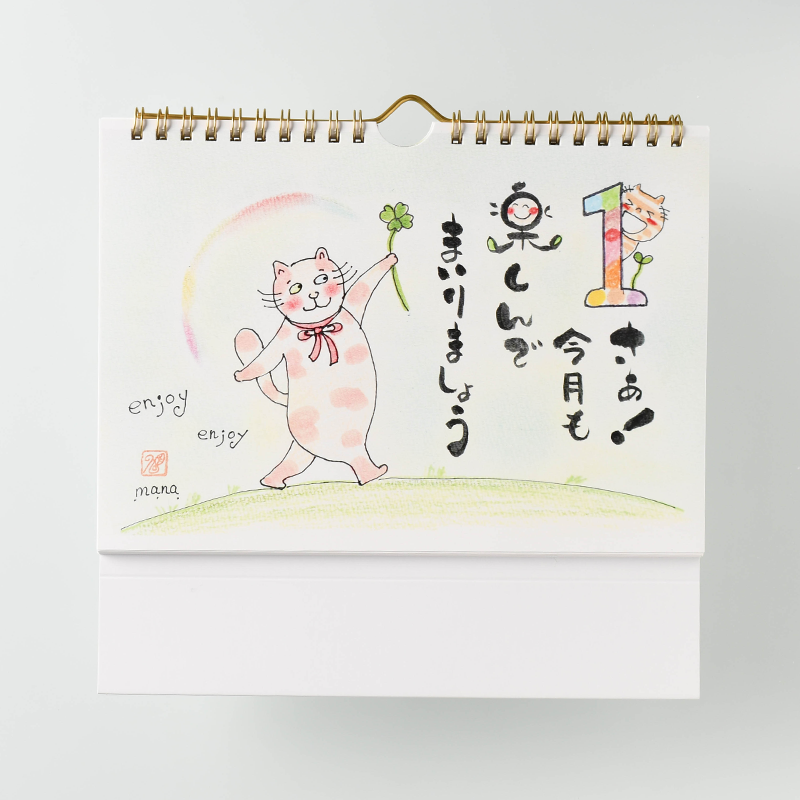 1
さぁ!
今月も
楽しんで
まいりましょう
enjoy
enjoy
mana